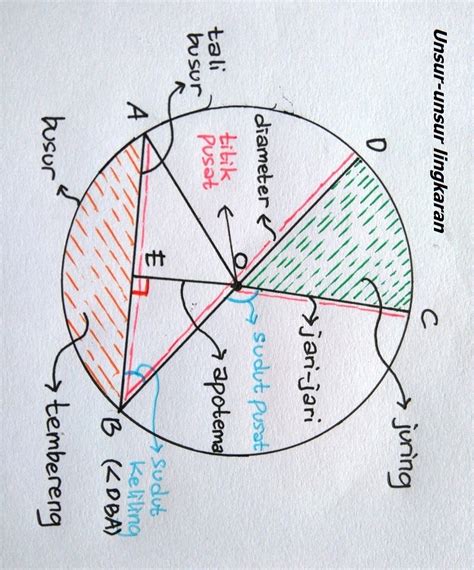 Unsur-unsur lingkaran
C
juring
D
jari-jari
diameter
sudut pusat
O
titik
pusat
apotema
tali
busur
E
A
sudut
keliling
(<DBA)
B
busur
tembereng